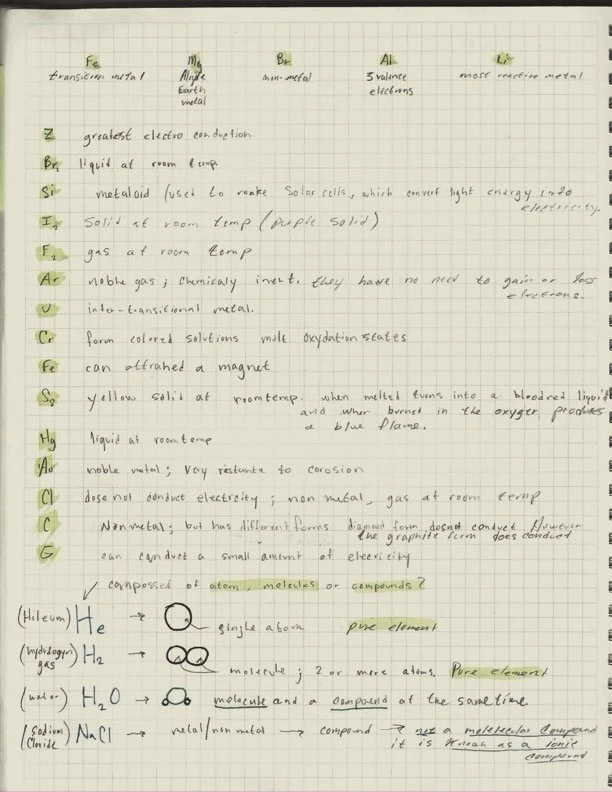 Fe Mg Br Al Li
transition metal Alkyde non-metal 3 valence most reactive metal
Earth electrons
metal
Z greatest electro conduction
Br₂ liquid at room temp
Si metaloid (used to make solar cells, which convert light energy into
electricity.
I₂ Solid at room temp (purple solid)
F₂ gas at room temp
Ar noble gas; chemicaly inert. they have no need to gain or loss
electrons.
U inter-transitional metal.
Cr form colored solutions mult oxydation states
Fe can attrahed a magnet
S₈ yellow solid at roomtemp. when melted turns into a bloodred liquid
and when burned in the oxyger produces
a blue flame.
Hg liquid at roomtemp
Au noble metal; very restante to corosion
Cl dose not conduct electrcity; non metal, gas at room temp
C Nonmetal; but has different forms diamond form doesnot conduct However
the graphite form does conduct
G can conduct a small amount of elecricity
compossed of atom, molecules or compounds?
(Hileum) He → single atom pure element
(hydrogyn
gas) H₂ → molecule; 2 or more atoms. Pure element
(water) H₂O → molecule and a compound at the sametime
(sodium
Cloride) NaCl → metal/non metal → compound → not a molelcular compound
it is Known as a ionic
compound